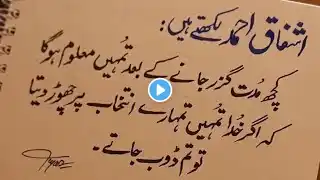 اشفاق احمد لکھتے ہیں:
کچھ مدت گزر جانے کے بعد تمہیں معلوم ہوگا
کہ اگر خُدا تمہیں تمہارے انتخاب پر چھوڑ دیتا
تو تم ڈوب جاتے۔